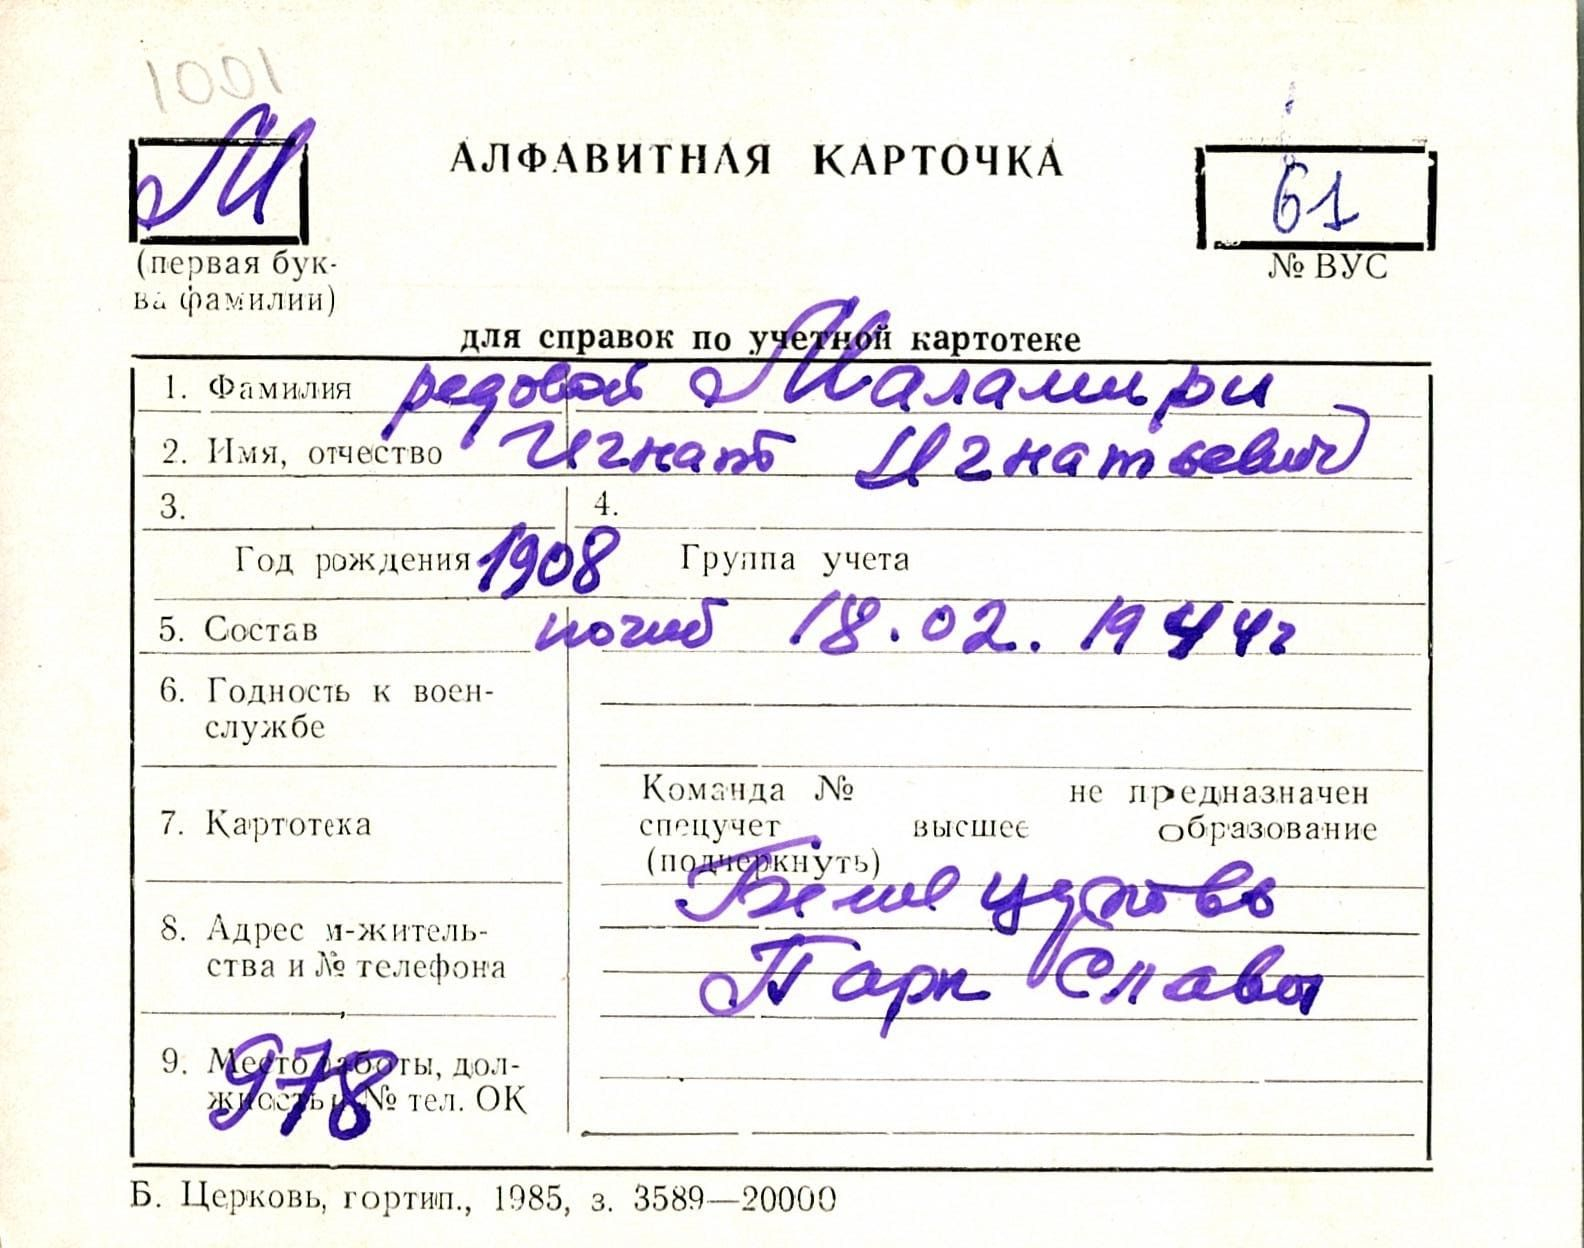 1001
М
АЛФАВИТНАЯ КАРТОЧКА
61
(первая бук-
ва фамилии)
№ ВУС
для справок по учетной картотеке
1. Фамилия редовой Маламири
2. Имя, отчество Игнат Игнатьевич
3. 4.
Год рождения 1908 Группа учета
5. Состав погиб 18.02.1944г
6. Годность к воен-
службе
Команда № не предназначен
7. Картотека спецучет высшее образование
(подчеркнуть)
Белая церковь
8. Адрес м-житель-
ства и № телефона
Парк Славы
9. Место работы, дол-
жность и № тел. ОК
978
Б. Церковь, гортип., 1985, з. 3589—20000